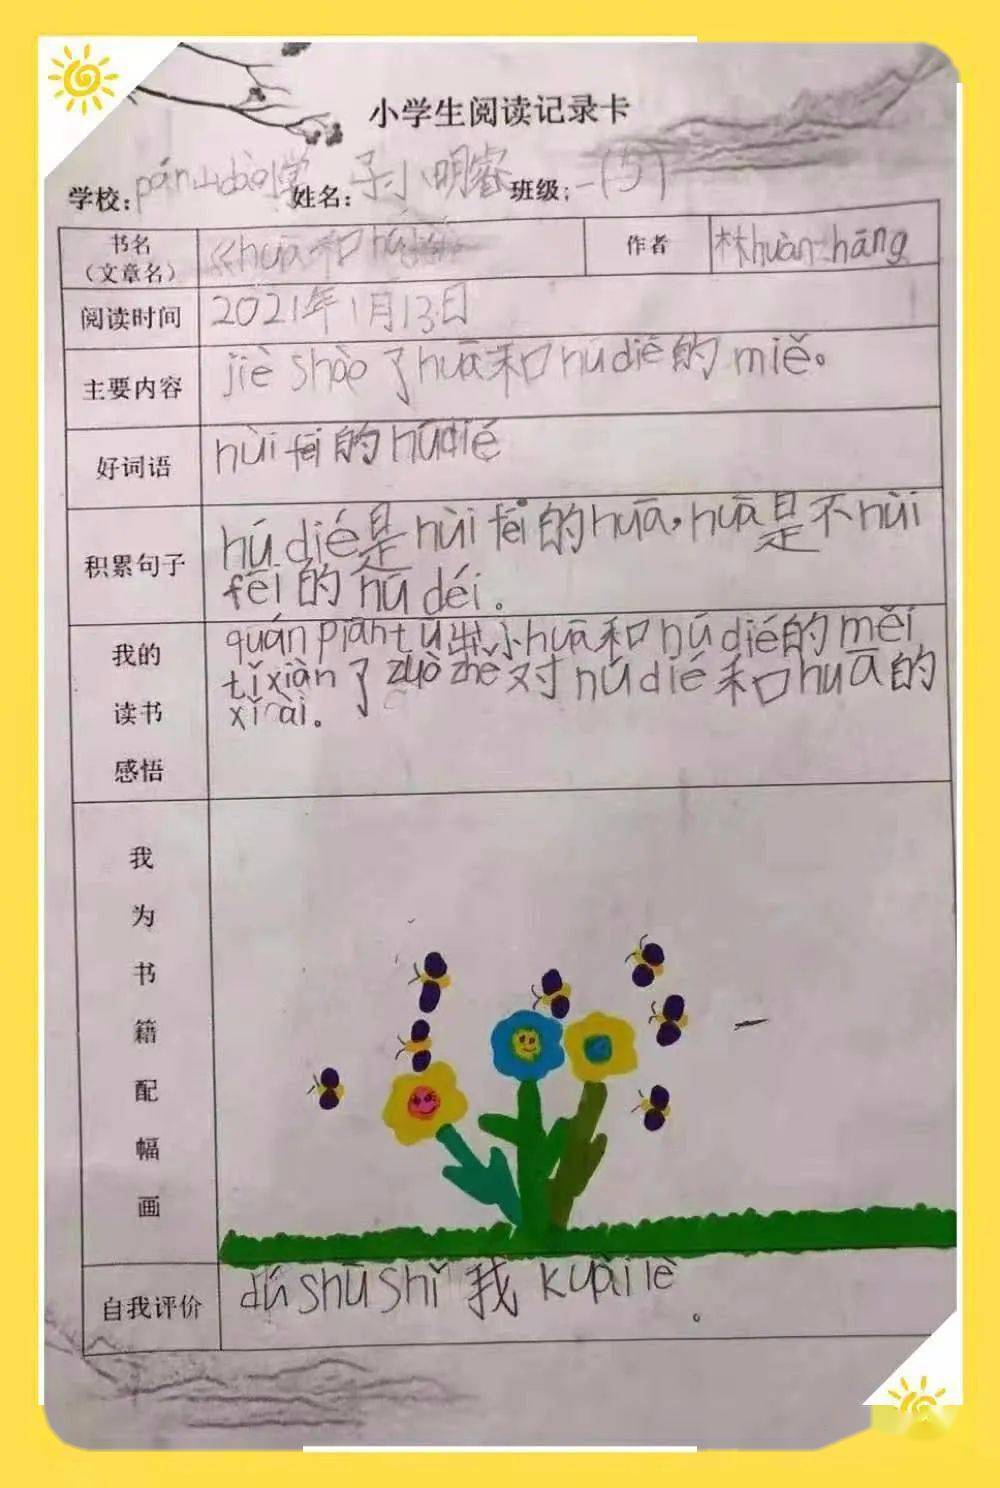 小学生阅读记录卡
学校: pán山dào小学 姓名: 小明睿 班级: 一(5)
书名
(文章名) 《huā和hú
作者 林huàn zhāng
阅读时间 2021年1月13日
主要内容 jiè shào了huā和hú dié的miě。
好词语 hùi fēi的húdié
积累句子 hú dié是hùi fēi的huā,huā是不hùi
fēi的hú déi。
我的
读书
感悟
quán piān tú出小huā和hú dié的měi
tǐ xiàn了zuò zhě对hú dié和huā的
xǐ ài。
我
为
书
籍
配
幅
画
自我评价 dú shū shǐ我kuài lè。